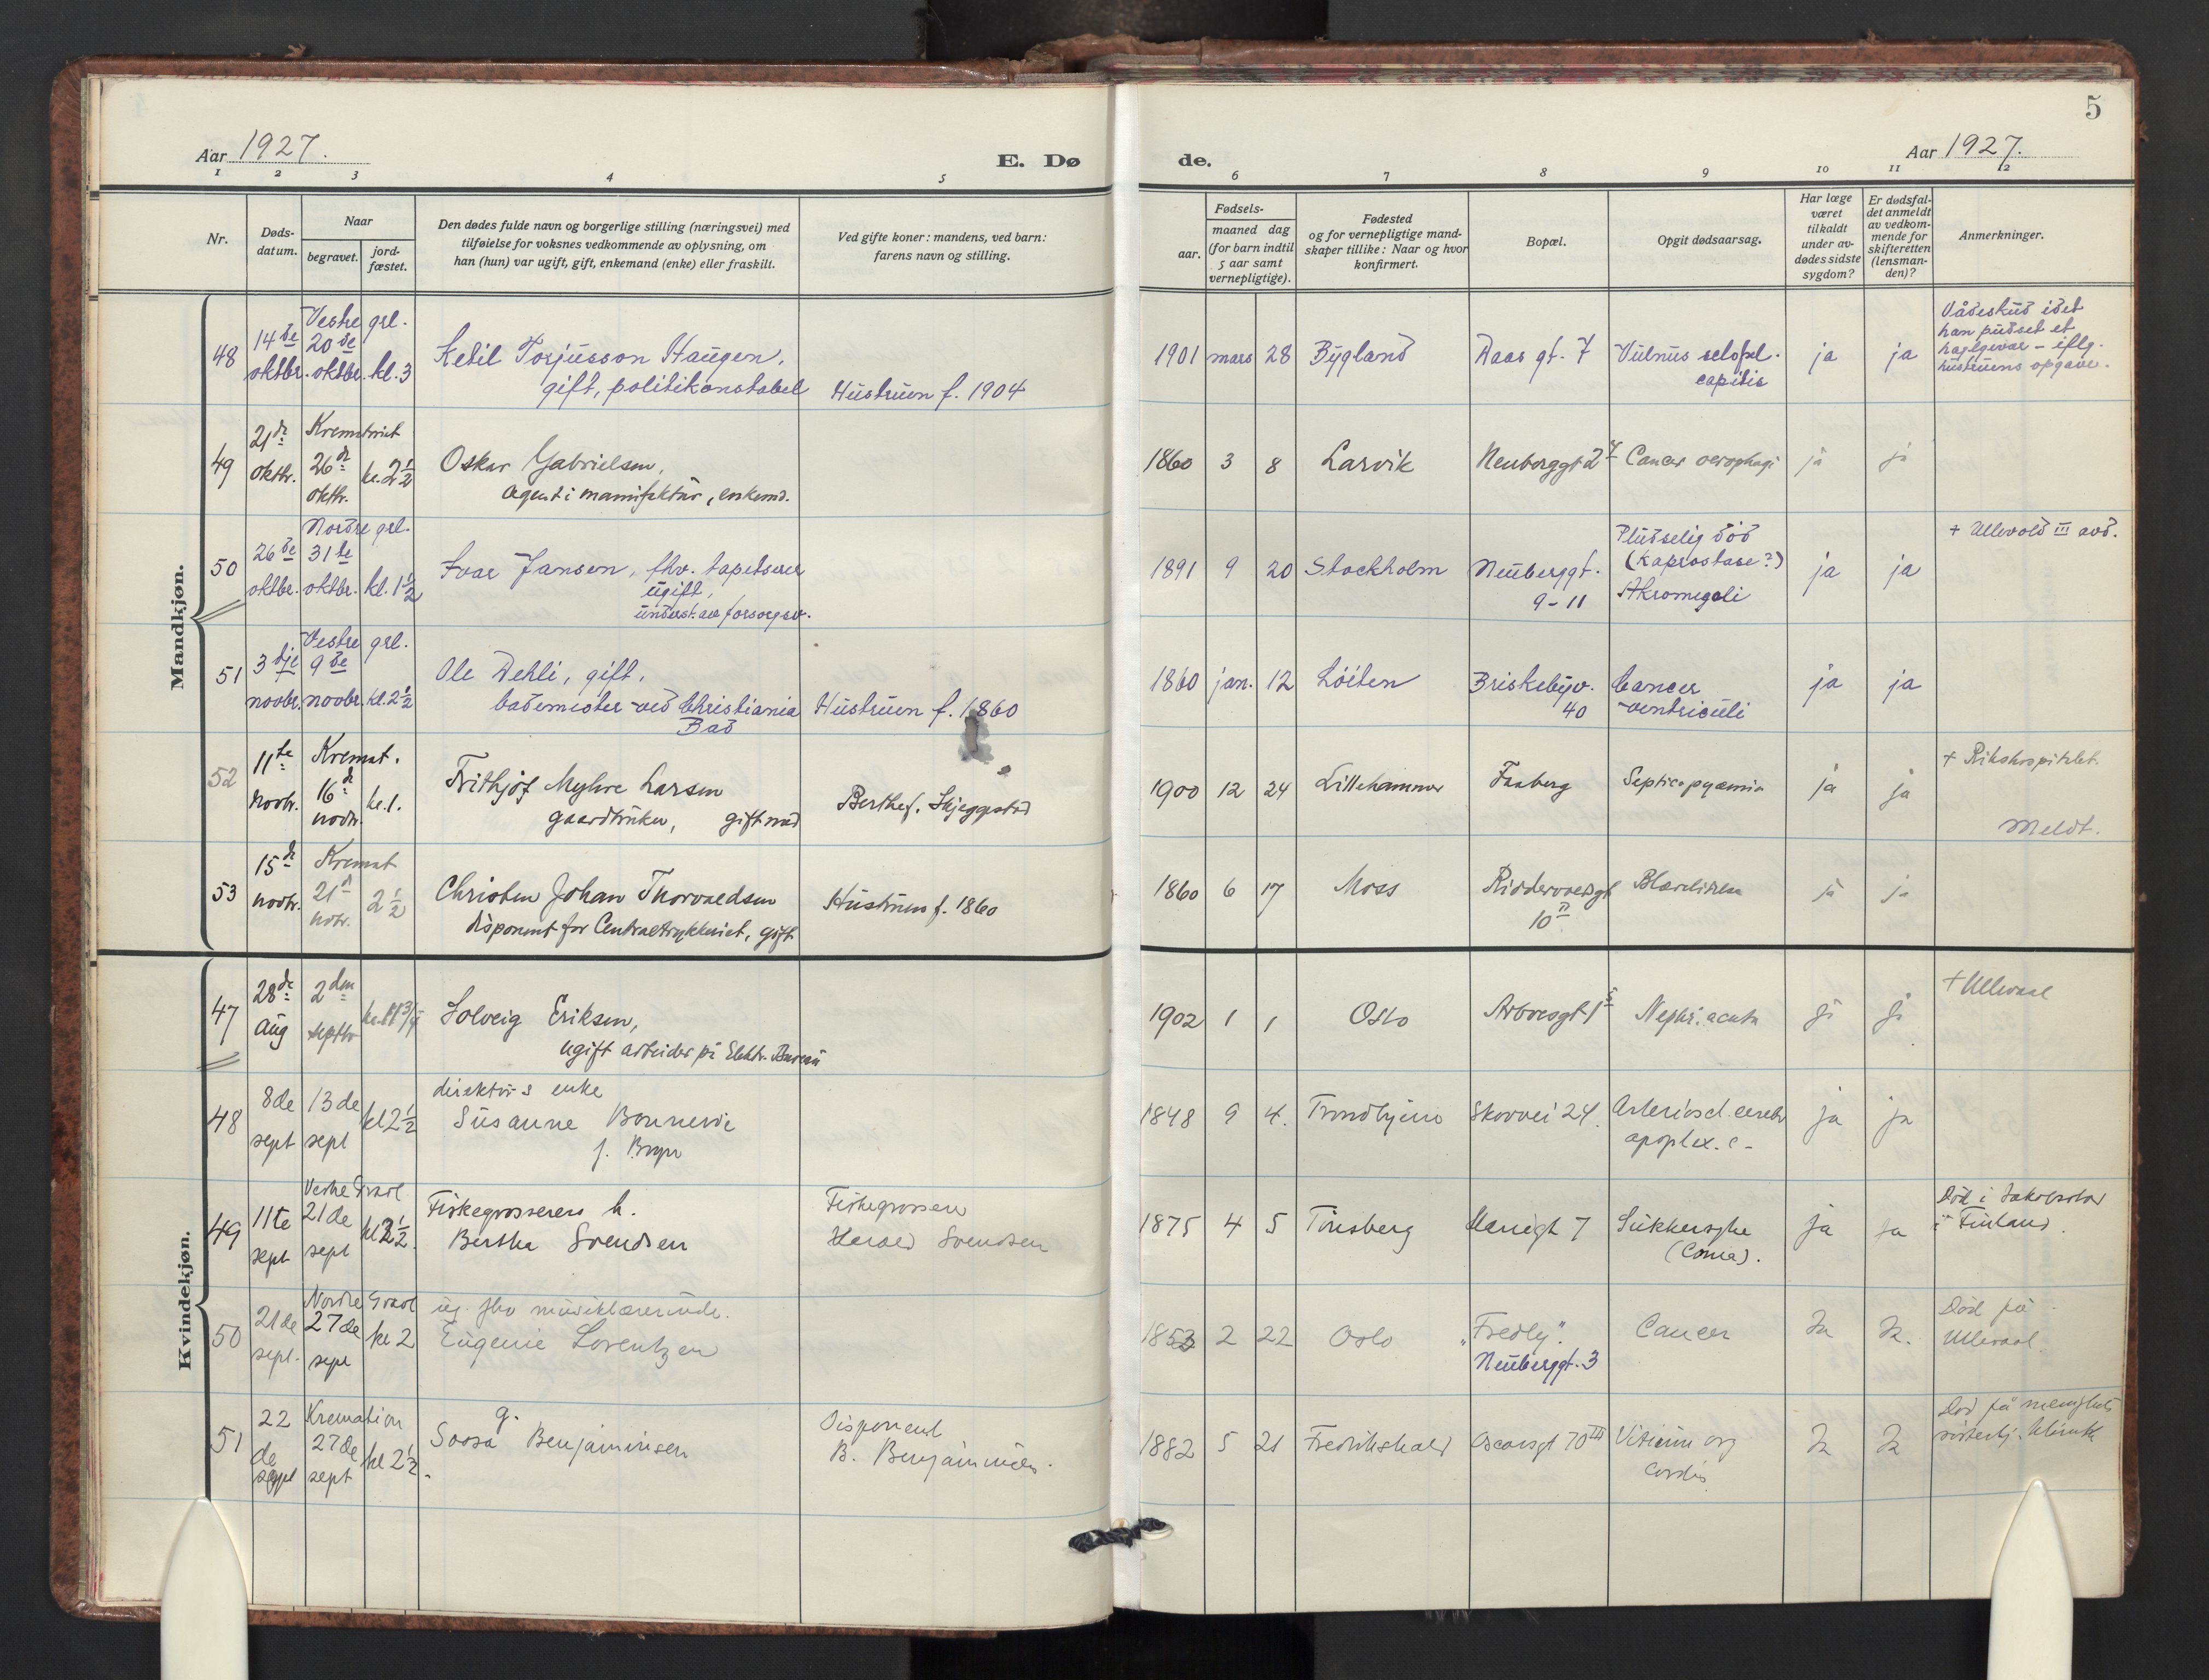 5
Aar 1927.
E. Dø
de.
Aar 1927.
1 2 3 4 5 6 7 8 9 10 11 12
Nr.
Døds-
datum.
Naar
begravet.
jord-
fæstet.
Den dødes fulde navn og borgerlige stilling (næringsvei) med
tilføielse for voksnes vedkommende av oplysning, om
han (hun) var ugift, gift, enkemand (enke) eller fraskilt.
Ved gifte koner: mandens, ved barn:
farens navn og stilling.
Fødsels-
aar.
maaned dag
(for barn indtil
5 aar samt
vernepligtige).
Fødested
og for vernepligtige mand-
skaper tillike: Naar og hvor
konfirmert.
Bopæl.
Opgit dødsaarsag.
Har læge
været
tilkaldt
under av-
dødes sidste
sygdom?
Er dødsfal-
det anmeldt
av vedkom-
mende for
skifteretten
(lensman-
den)?
Anmerkninger.
Mandkjøn.
48
14de
oktbr.
Vestre grl.
20de
oktbr. kl. 3
Ketil Torjusson Haugen,
gift, politikonstabel
Hustruen f. 1904
1901 mars 28
Bygland
Daas gt. 7
Vulnus sclopl.
capitis
ja
ja
Vådeskud idet
han pudset et
haglgevær - iflg.
hustruens opgave.
49
21de
oktbr.
Kremtoriet
26de
oktbr.
kl. 2½
Oskar Gabrielsen,
agent i manufaktur, enkemd.
1860 3 8
Larvik
Neuberggt 2
Cancer oesophagi
ja
ja
50
26de
oktbr.
Nordre grl.
31te
oktbr. kl. 1½
Ivar Jansen, fhv. tapetserer
ugift,
underst. av forsorgsv.
1891 9 20
Stockholm
Neuberggt.
9-11
Pludselig död
(Kaprostase?)
Akromegali
ja
ja
+ Ullevold III avd.
51
3dje
novbr.
Vestre grl.
9de
novbr. kl. 2½
Ole Dehli, gift,
bademester ved Christiania
Bad
Hustruen f. 1860
1860 jan. 12
Löiten
Briskebyv.
40
Cancer
ventriculi
ja
ja
52
11te
Novbr.
Kremat.
16de
novbr.
kl. 1.
Frithjof Myhre Larsen
gaardbruker, gift med
Berthe f. Skjeggestad
1900 12 24
Lillehammer
Faaberg
Septicopyæmia
ja
ja
+ Rikshospitalet.
Meldt.
53
15de
novbr.
Kremat
21de
novbr.
2½
Christen Johan Thorvaldsen
disponent for Centraltrykkeriet, gift
Hustruen f. 1860
1860 6 17
Moss
Riddervoldsgt
10 II
Blærelidelse
ja
ja
Kvindekjøn.
47
28de
Aug
2den
septbr
kl. 11¾
Solveig Eriksen,
ugift arbeider på Elektr. Bureau
1902 1 1
Oslo
Arbosgt 1
Nephr. acuta
ja
ja
+ Ullevaal
48
8de
sept
13de
sept
kl 2½
direktörs enke
Susanne Bonnevie
f. Bryn
1848 9 4.
Trondhjem
Skovvei 24.
Arterioscl. cerebr
apoplex. c -
ja
ja
49
11te
sept
Vestre Gravl
21de
sept
kl 2½.
Fiskegrosserers h.
Bertha Svendsen
Fiskegrosserer
Harald Svendsen
1875 4 5
Tönsberg
Mariegt 7
Sukkersyke
(Coma).
ja
ja
Död i Jakobstad
i Finland.
50
21de
sept.
Nordre Gravl
27de
sept
kl 2
ug. fhv musiklærerinde.
Eugenie Lorentzen
1853 2 22
Oslo
"Fredly".
Neuberggt. 3
Cancer
Ja
Ja.
Död på
Ullevaal.
51
22
de
sept
Kremation
27de
sept
kl 2½.
g.
Soosa Benjaminsen
Disponent
B. Benjaminsen.
1882 5 21
Fredrikshald
Oscarsgt 70 III
Vitium org
cordis
Ja
Ja
Död på menighets
sösterhj. klinikk